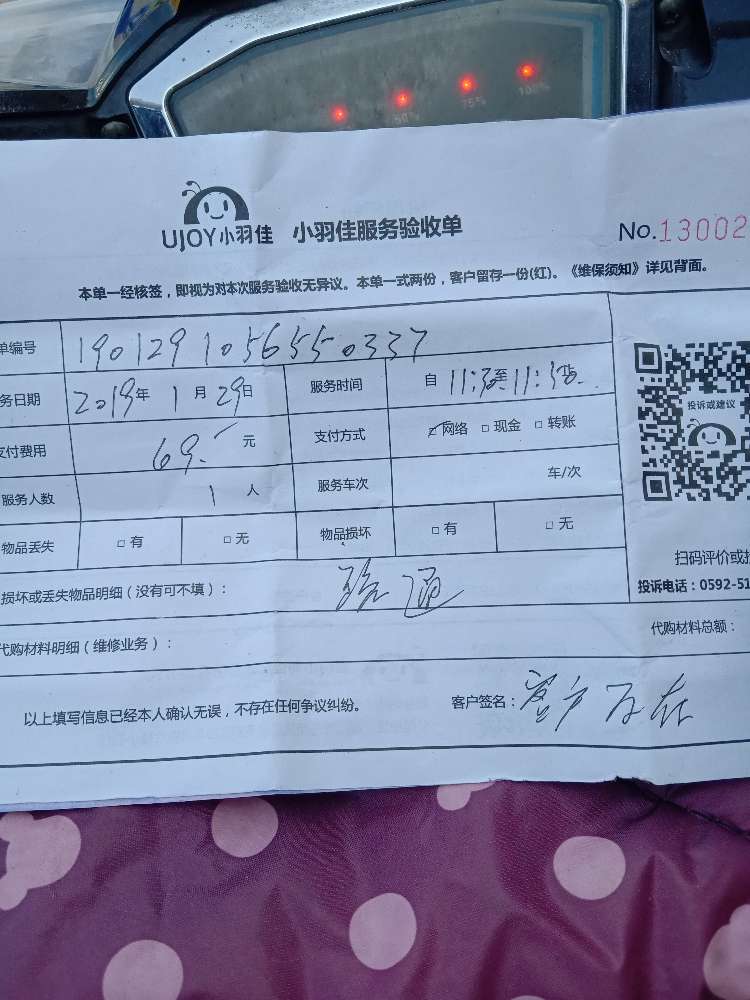 50% 75% 100%
UJOY小羽佳 小羽佳服务验收单 No.13002
本单一经核签，即视为对本次服务验收无异议。本单一式两份，客户留存一份(红)。《维保须知》详见背面。
单编号 1901291056550337
务日期 2019年 1月29日 服务时间 自 11:30至11:38
支付费用 69.- 元 支付方式 ☑网络 □现金 □转账
服务人数 1人 服务车次 车/次
物品丢失 □有 □无 物品损坏 □有 □无
投诉或建议
扫码评价或
投诉电话：0592-51
损坏或丢失物品明细（没有可不填）： 疏通
代购材料明细（维修业务）： 代购材料总额：
以上填写信息已经本人确认无误，不存在任何争议纠纷。 客户签名：客户不在